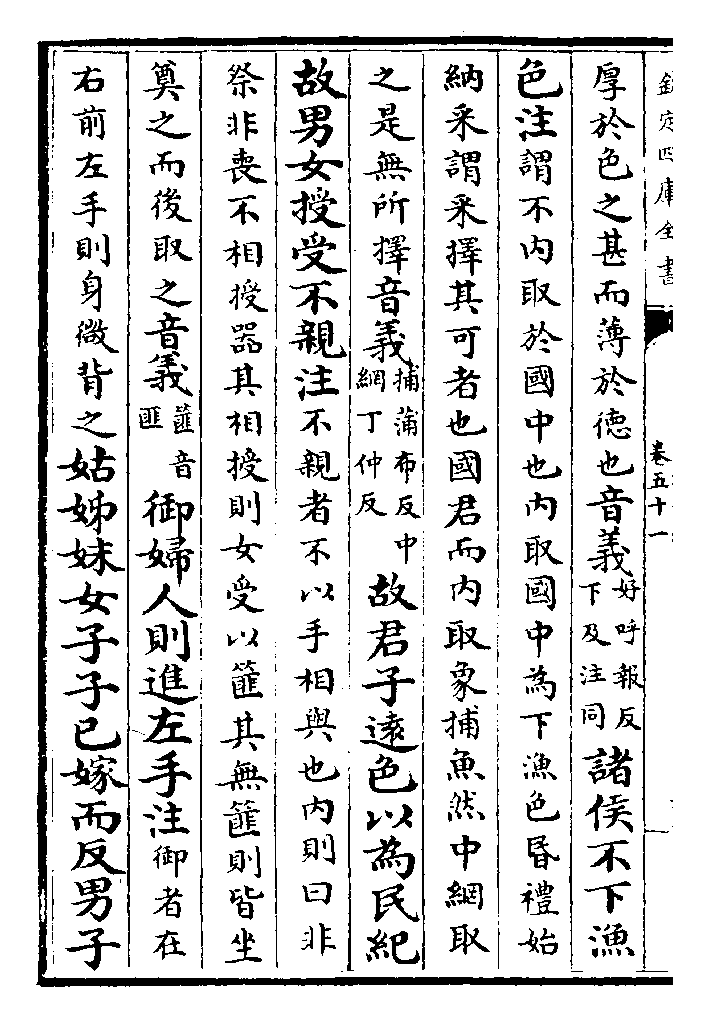 欽定四庫全書
卷五十一
厚於色之甚而薄於德也音義好呼報反下及注同諸侯不下漁
色注謂不内取於國中也内取國中為下漁色昏禮始
納采謂采擇其可者也國君而内取象捕魚然中網取
之是無所擇音義捕蒲布反中網丁仲反故君子遠色以為民紀
故男女授受不親注不親者不以手相與也内則曰非
祭非喪不相授器其相授則女受以篚其無篚則皆坐
奠之而後取之音義篚音匪御婦人則進左手注御者在
右前左手則身微背之姑姊妹女子子已嫁而反男子